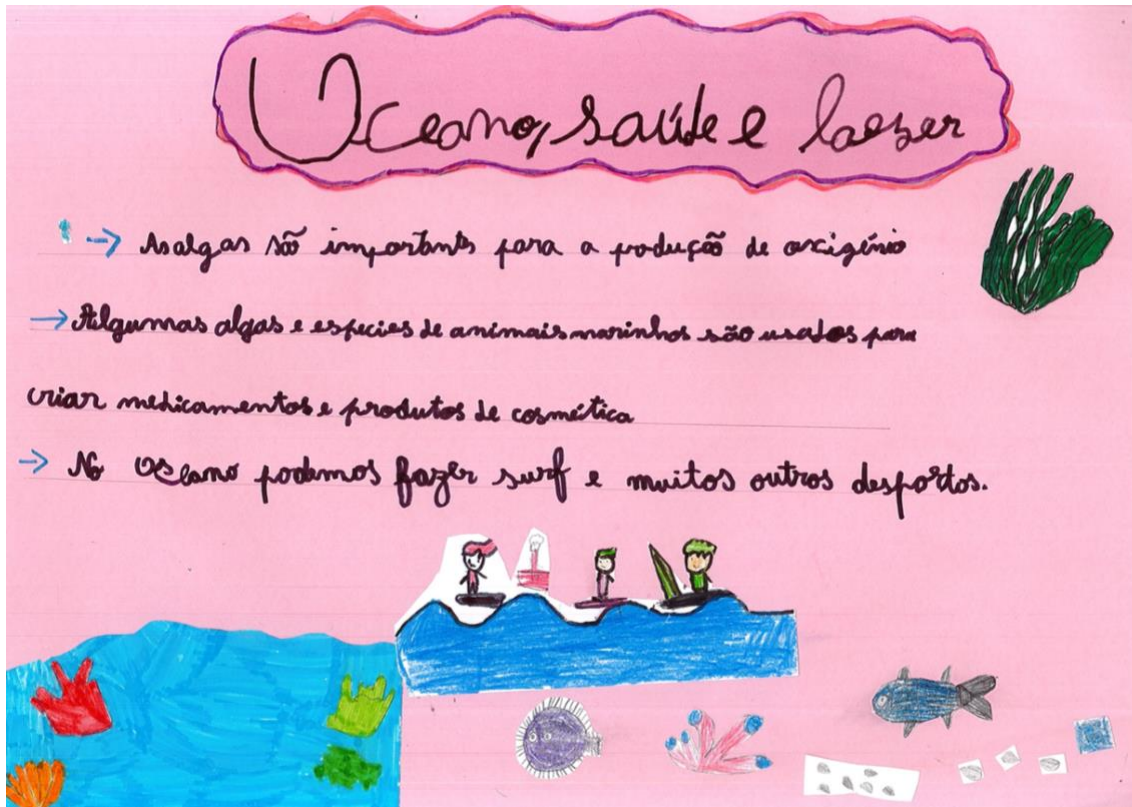 Oceano, saúde e laezer
→ As algas são importants para a produção de oxcigénio
→ Algumas algas e especies de animais marinhos são usados para
criar medicamentos e produtos de cosmética
→ No Oceano podemos fazer surf e muitos outros desportos.